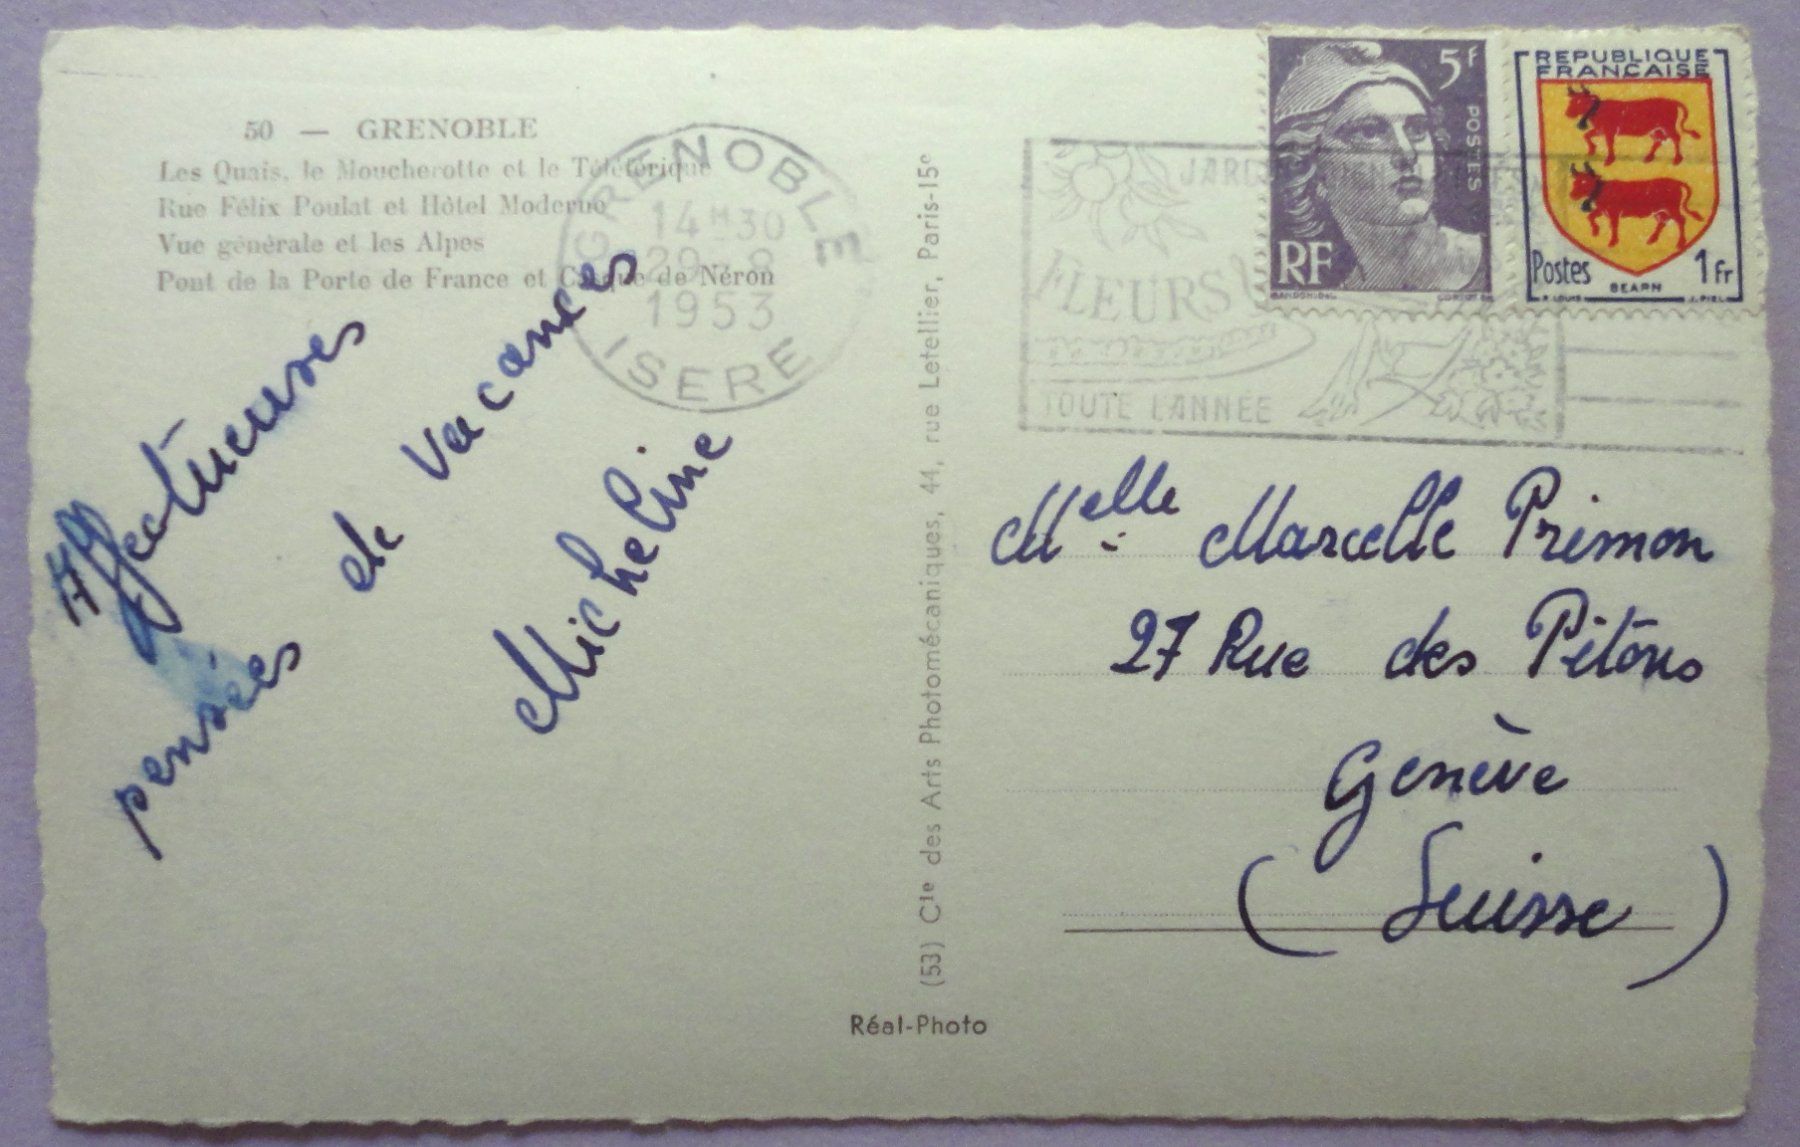 50 — GRENOBLE
Les Quais, le Moucherotte et le Téléférique
Rue Félix Poulat et Hôtel Moderne
Vue générale et les Alpes
Pont de la Porte de France et Casque de Néron
GRENOBLE
14H30
29-8
1953
ISERE
Affectueuses
pensées de vacances
Micheline
(53) Cie des Arts Photomécaniques, 44, rue Letellier, Paris-15e
Réal-Photo
FLEURS
TOUTE L'ANNÉE
5f
POSTES
RF
GANDON DEL.
REPUBLIQUE
FRANÇAISE
Postes 1Fr
BEARN
R. LOUIS J. PIEL
Melle Marcelle Primon
27 Rue des Pitons
Genève
(Suisse)